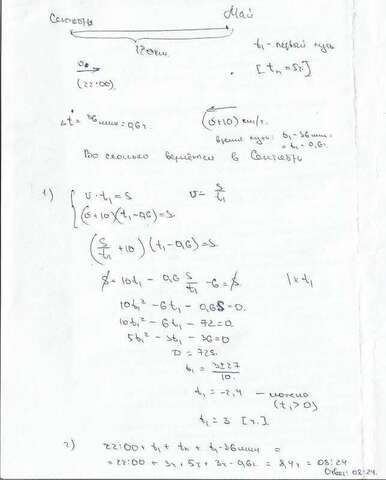 Сентябрь Май
120 км.
t₁ - первый путь
[tₙ = 5ч.]
(22:00)
Δt = 36 мин = 0,6ч. (v+10) км/ч.
время путь: t₁-36 мин =
= t₁-0,6ч.
Во сколько вернётся в Сентябрь
1) { v·t₁ = S v = S/t₁
(v+10)(t₁-0,6) = S.
(S/t₁ + 10)(t₁-0,6) = S
S + 10t₁ - 0,6 S/t₁ - 6 = S | × t₁
10t₁² - 6t₁ - 0,6S = 0.
10t₁² - 6t₁ - 72 = 0
5t₁² - 3t₁ - 36 = 0
D = 729.
t₁ = 3±27/10.
t₁ = -2,4 -
(t₁>0)
t₁ = 3 [ч.]
2) 22:00 + t₁ + tₙ + t₁-36 мин =
= 22:00 + 3ч + 5ч + 3ч - 0,6ч = 8,4ч = 08:24
Ответ: 08:24.